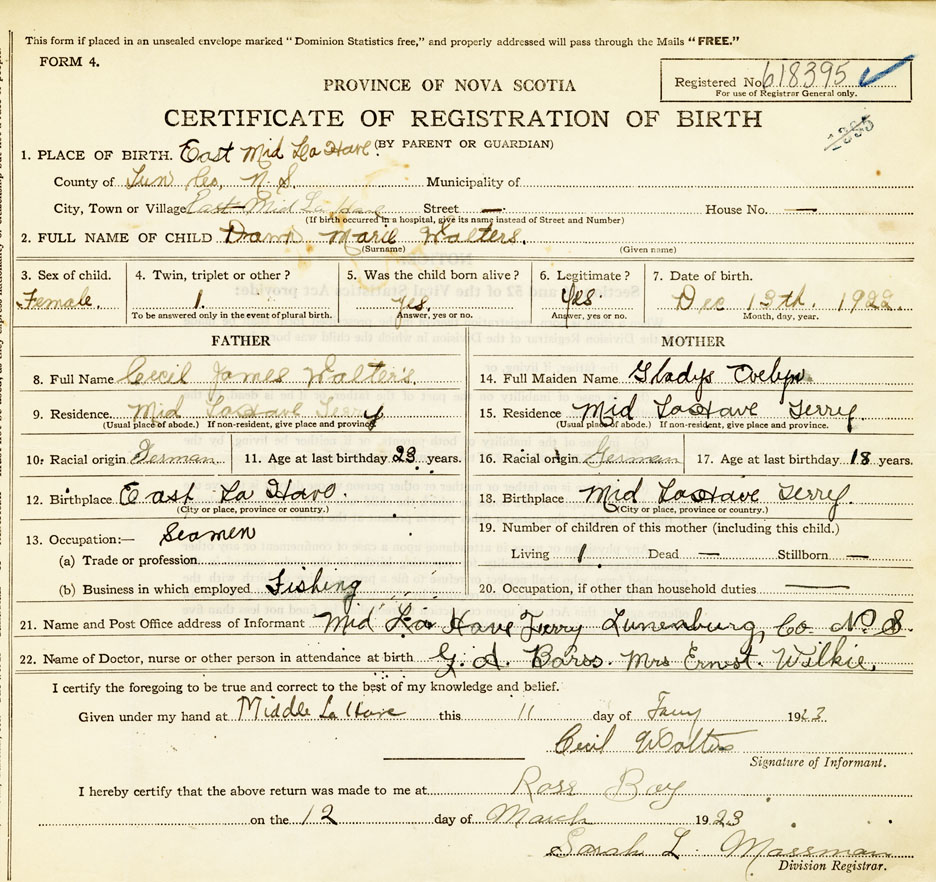 This form if placed in an unsealed envelope marked "Dominion Statistics free," and properly addressed will pass through the Mails "FREE."
FORM 4.
Registered No. 618395
For use of Registrar General only.
PROVINCE OF NOVA SCOTIA
CERTIFICATE OF REGISTRATION OF BIRTH
(BY PARENT OR GUARDIAN)
1. PLACE OF BIRTH. East Mid La Have.
County of Lun Co, N.S. Municipality of
City, Town or Village East Mid La Have Street — House No. —
(If birth occurred in a hospital, give its name instead of Street and Number)
2. FULL NAME OF CHILD Marie Walters.
(Surname) (Given name)
3. Sex of child. 4. Twin, triplet or other? 5. Was the child born alive? 6. Legitimate? 7. Date of birth.
Female. 1 yes. yes. Dec 13th. 1922.
To be answered only in the event of plural birth. Answer, yes or no. Answer, yes or no. Month, day, year.
FATHER MOTHER
8. Full Name Cecil James Walters. 14. Full Maiden Name Gladys Evelyn
9. Residence. Mid LaHave Ferry 15. Residence Mid LaHave Ferry
(Usual place of abode.) If non-resident, give place and province (Usual place of abode.) If non-resident, give place and province.
10. Racial origin German 11. Age at last birthday 23 years. 16. Racial origin German 17. Age at last birthday 18 years.
12. Birthplace East La Have. 18. Birthplace Mid LaHave Ferry
(City or place, province or country.) (City or place, province or country.)
13. Occupation:— Seamen 19. Number of children of this mother (including this child.)
(a) Trade or profession Living 1 Dead — Stillborn —
(b) Business in which employed Fishing 20. Occupation, if other than household duties —
21. Name and Post Office address of Informant Mid La Have Ferry Lunenburg Co N.S.
22. Name of Doctor, nurse or other person in attendance at birth G. A. Barss. Mrs Ernest. Wilkie.
I certify the foregoing to be true and correct to the best of my knowledge and belief.
Given under my hand at Middle La Have this 11 day of 1923
Cecil Walters
Signature of Informant.
I hereby certify that the above return was made to me at Rose Bay
on the 12 day of March 1923
Sarah L. Mossman
Division Registrar.